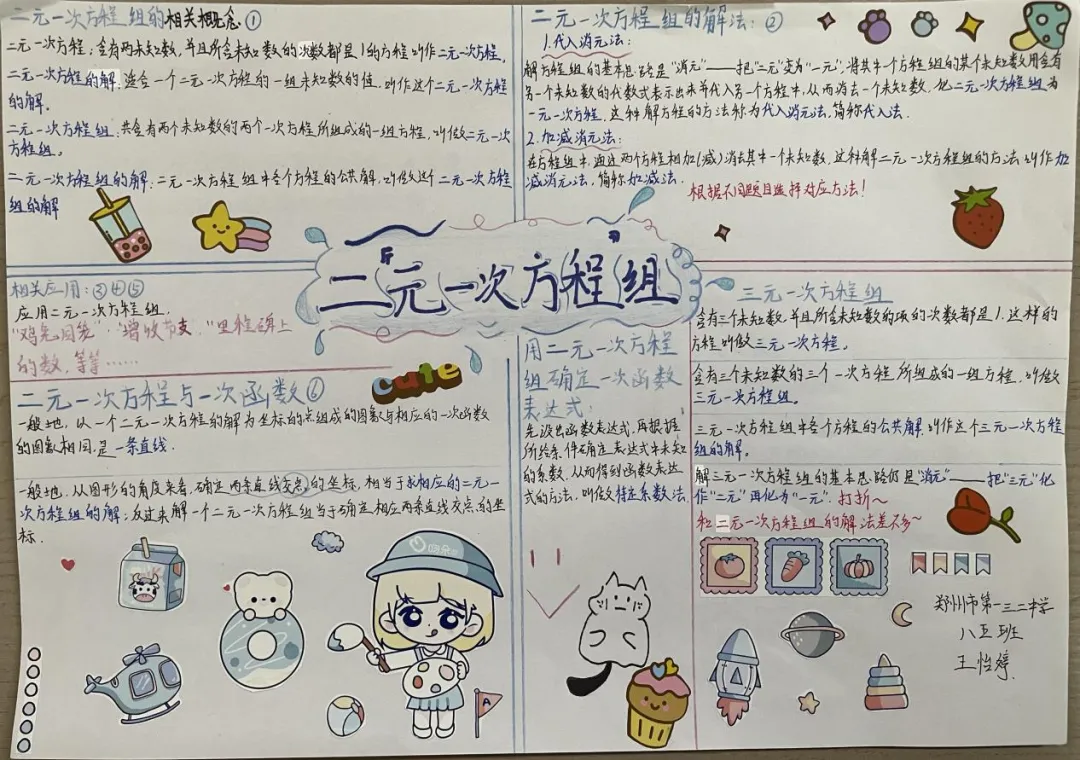 二元一次方程组的相关概念①
二元一次方程：含有两未知数，并且所含未知数的次数都是1的方程叫作二元一次方程。
二元一次方程的解：适合一个二元一次方程的一组未知数的值，叫作这个二元一次方程
的解。
二元一次方程组：共含有两个未知数的两个一次方程所组成的一组方程，叫做二元一次
方程组。
二元一次方程组的解：二元一次方程组中各个方程的公共解，叫做这个二元一次方程
组的解
二元一次方程组的解法：②
1.代入消元法：
解方程组的基本思路是“消元”——把“二元”变为“一元”，将其中一个方程组的某个未知数用含有
另一个未知数的代数式表示出来并代入另一个方程中，从而消去一个未知数，化二元一次方程组为
一元一次方程，这种解方程的方法称为代入消元法，简称代入法．
2.加减消元法：
在方程组中，通过两个方程相加(减)消去其中一个未知数，这种解二元一次方程组的方法叫作加
减消元法，简称加减法．
根据不同题目选择对应方法！
二元一次方程组
相关应用：③④⑤
应用二元一次方程组．
“鸡兔同笼”，“增收节支，“里程碑上
的数，等等……
二元一次方程与一次函数⑥
一般地，以一个二元一次方程的解为坐标的点组成的图象与相应的一次函数
的图象相同，是一条直线．
一般地，从图形的角度来看，确定两条直线交点的坐标，相当于求相应的二元一
次方程组的解；反过来解一个二元一次方程组当于确定相应两条直线交点的坐
标．
cute
用二元一次方程
组确定一次函数
表达式：
先设出函数表达式，再根据
所给条件确定表达式中未知
的系数，从而得到函数表达
式的方法，叫做待定系数法．
三元一次方程组
含有三个未知数，并且所含未知数的项的次数都是1，这样的
方程叫做三元一次方程。
含有三个未知数的三个一次方程所组成的一组方程，叫做
三元一次方程组。
三元一次方程组中各个方程的公共解，叫作这个三元一次方程
组的解。
解三元一次方程组的基本思路仍是“消元”——把“三元”化
作“二元”再化为“一元”．打折～
和二元一次方程组的解法差不多～
A
郑州市第一三二中学
八五班
王怡婷．